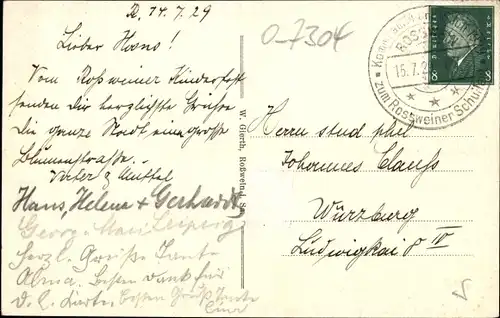 R. 14.7.29
Lieber Hans!
Vom Roßweiner Kinderfest
senden dir herzlichste Grüße
die ganze Stadt eine große
Blumenstraße. –
Vater & Mutter
Hans, Helena + Gerhard
Georg Leipzig
Herzl. Grüße Tante
Alma. Besten Dank für
d. l. Karte. Besten Gruß Tante
W. Gierth, Roßwein i. S.
0-7304
ROSSWEIN
15.7.29
zum Rossweiner Schulfest
8 8
Herrn stud phil
Johannes Clauß
Würzberg
Ludwigkai 8 IV